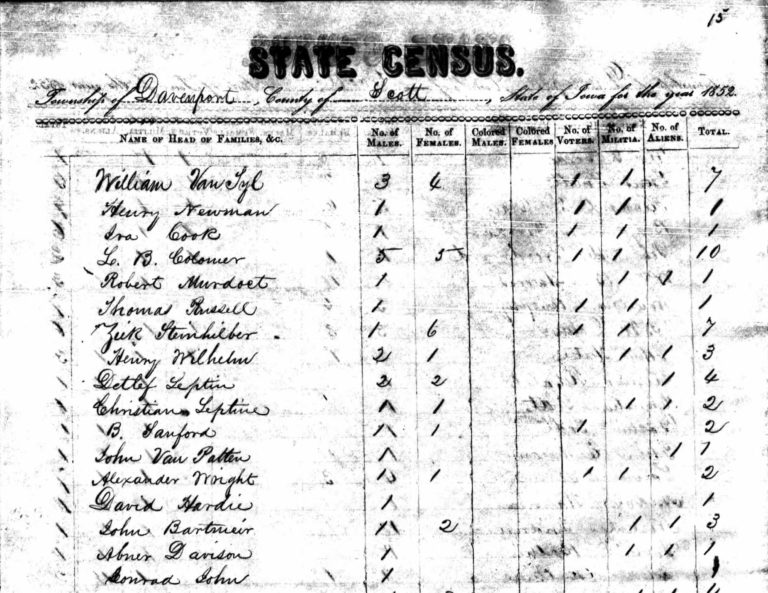 15
STATE CENSUS.
Township of Davenport, County of Scott, State of Iowa for the year 1852.
NAME OF HEAD OF FAMILIES, &C. No. of MALES. No. of FEMALES. Colored MALES. Colored FEMALES No. of VOTERS. No. of MILITIA. No. of ALIENS. TOTAL.
William Van Syl 3 4 1 1 7
Henry Newman 1 1 1 1
Ira Cook 1 1 1 1
L. B. Colomer 5 5 1 1 10
Robert Murdoct 1 1 1 1
Thomas Russell 1 1 1 1
Zeik Steinhilber 1 6 1 1 7
Henry Wilhelm 2 1 1 1 3
Detlef Leptin 2 2 1 4
Christian Leptine 1 1 1 1 2
B. Sanford 1 1 1 2
John Van Patten 1 1
Alexander Wright 1 1 1 1 2
David Hardie 1 1
John Bartmeir 1 2 1 1 3
Abner Davison 1 1 1 1
Conrad John 1 1